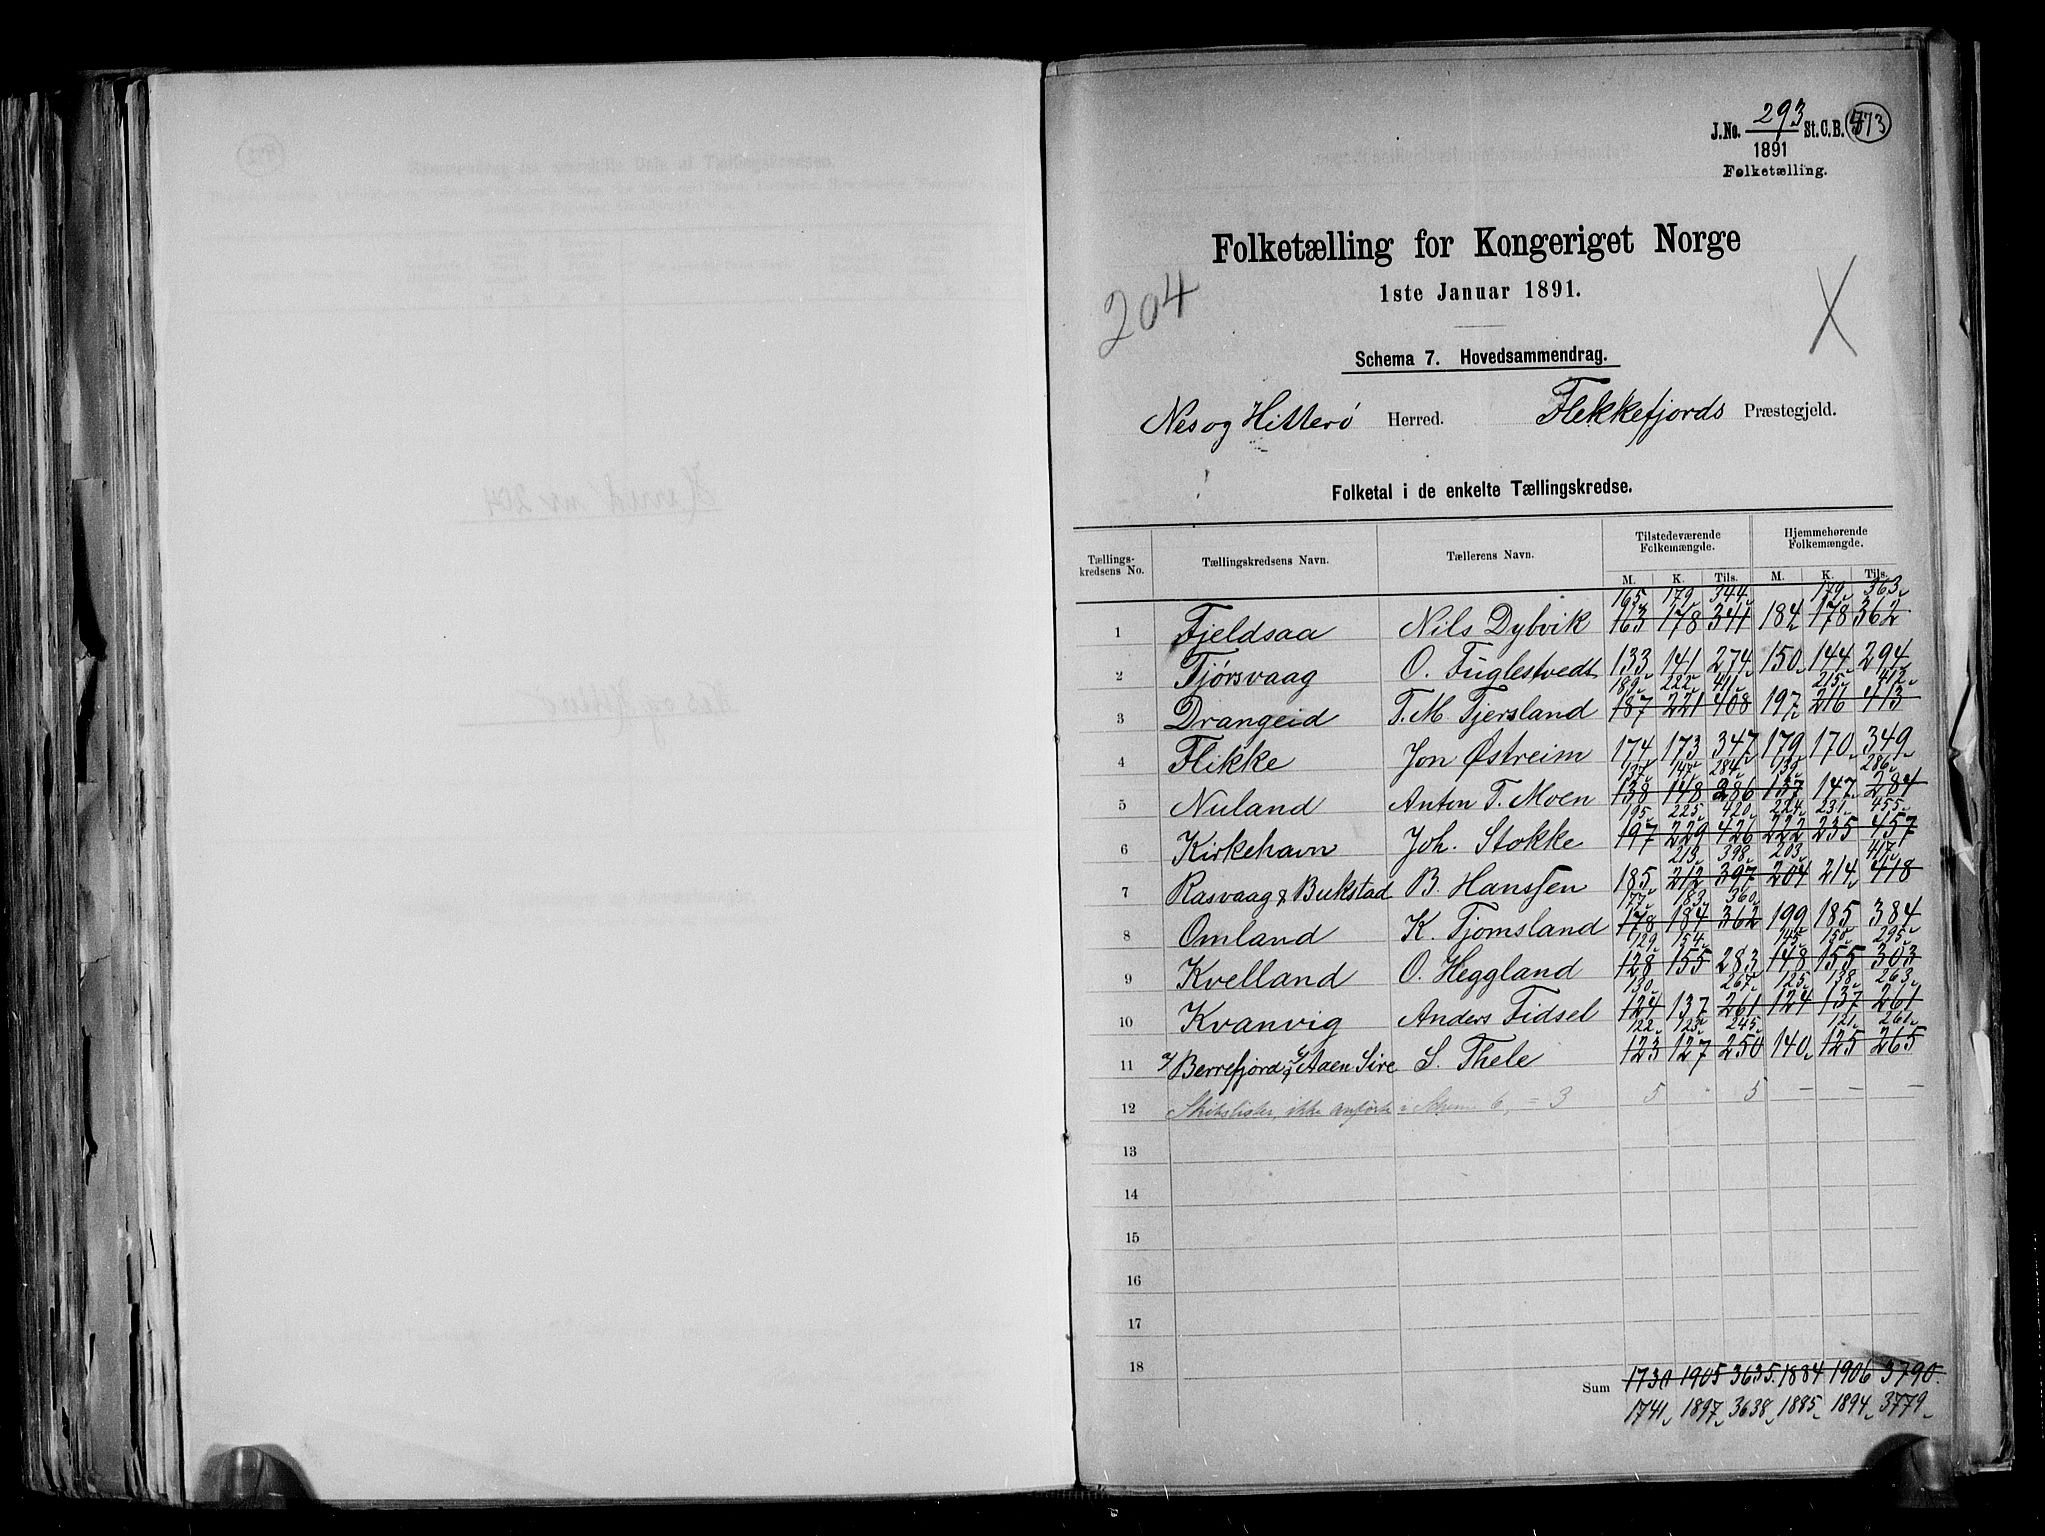 J.No. 293 St.C.B. 473
1891
Folketælling.
Folketælling for Kongeriget Norge
204
1ste Januar 1891.
X
Schema 7. Hovedsammendrag.
Nes og Hitterø Herred. Flekkefjords Præstegjeld.
Folketal i de enkelte Tællingskredse.
Tællingskredsens No. Tællingskredsens Navn. Tællerens Navn. Tilstedeværende Folkemængde. Hjemmehørende Folkemængde.
M. K. Tils. M. K. Tils.
165 179 344 179 363
1 Fjeldsaa Nils Dybvik 163 178 341 184 178 362
2 Tjørsvaag O. Fuglestvedt 133 141 274 150 144 294
189 222 411 215 412
3 Drangeid T. M. Tjersland 187 221 408 197 216 413
4 Flikke Jon Østreim 174 173 347 179 170 349
137 147 284 139 286
5 Nuland Anton T. Moen 138 148 286 137 147 284
195 225 420 224 231 455
6 Kirkehavn Joh. Stokke 197 229 426 222 235 457
213 398 203 417
7 Rasvaag & Bukstad B. Hanssen 185 212 397 204 214 418
177 183 360
8 Omland K. Tjomsland 178 184 362 199 185 384
129 154 145 150 295
9 Kvelland O. Heggland 128 155 283 148 155 303
130 267 125 138 263
10 Kvanvig Anders Fidsel 124 137 261 124 137 261
122 123 245 121 261
11 Berrefjord & Aaen Sire S. Thele 123 127 250 140 125 265
12 Skibslister, ikke anførte i Schema 6, = 3 5 " 5 — — —
13
14
15
16
17
18
Sum 1730 1905 3635 1884 1906 3790
1741 1897 3638 1885 1894 3779